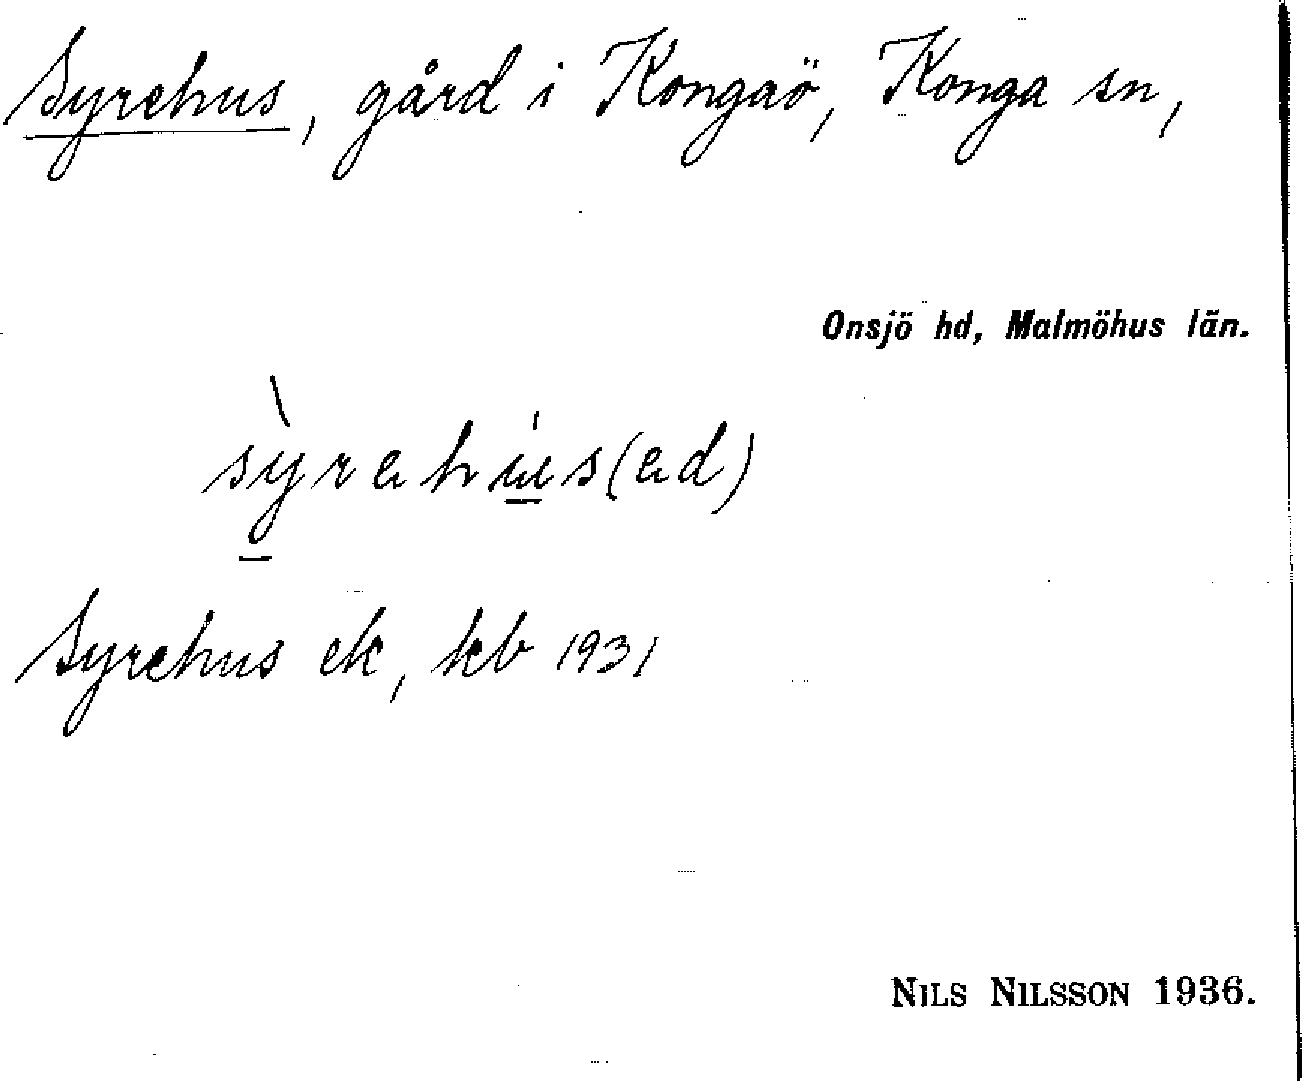 Syrehus, gård i Kongaö, Konga sn,
Onsjö hd, Malmöhus län.
sỳrahu̍s(ad)
Syrehus ek, kb 1931
NILS NILSSON 1936.